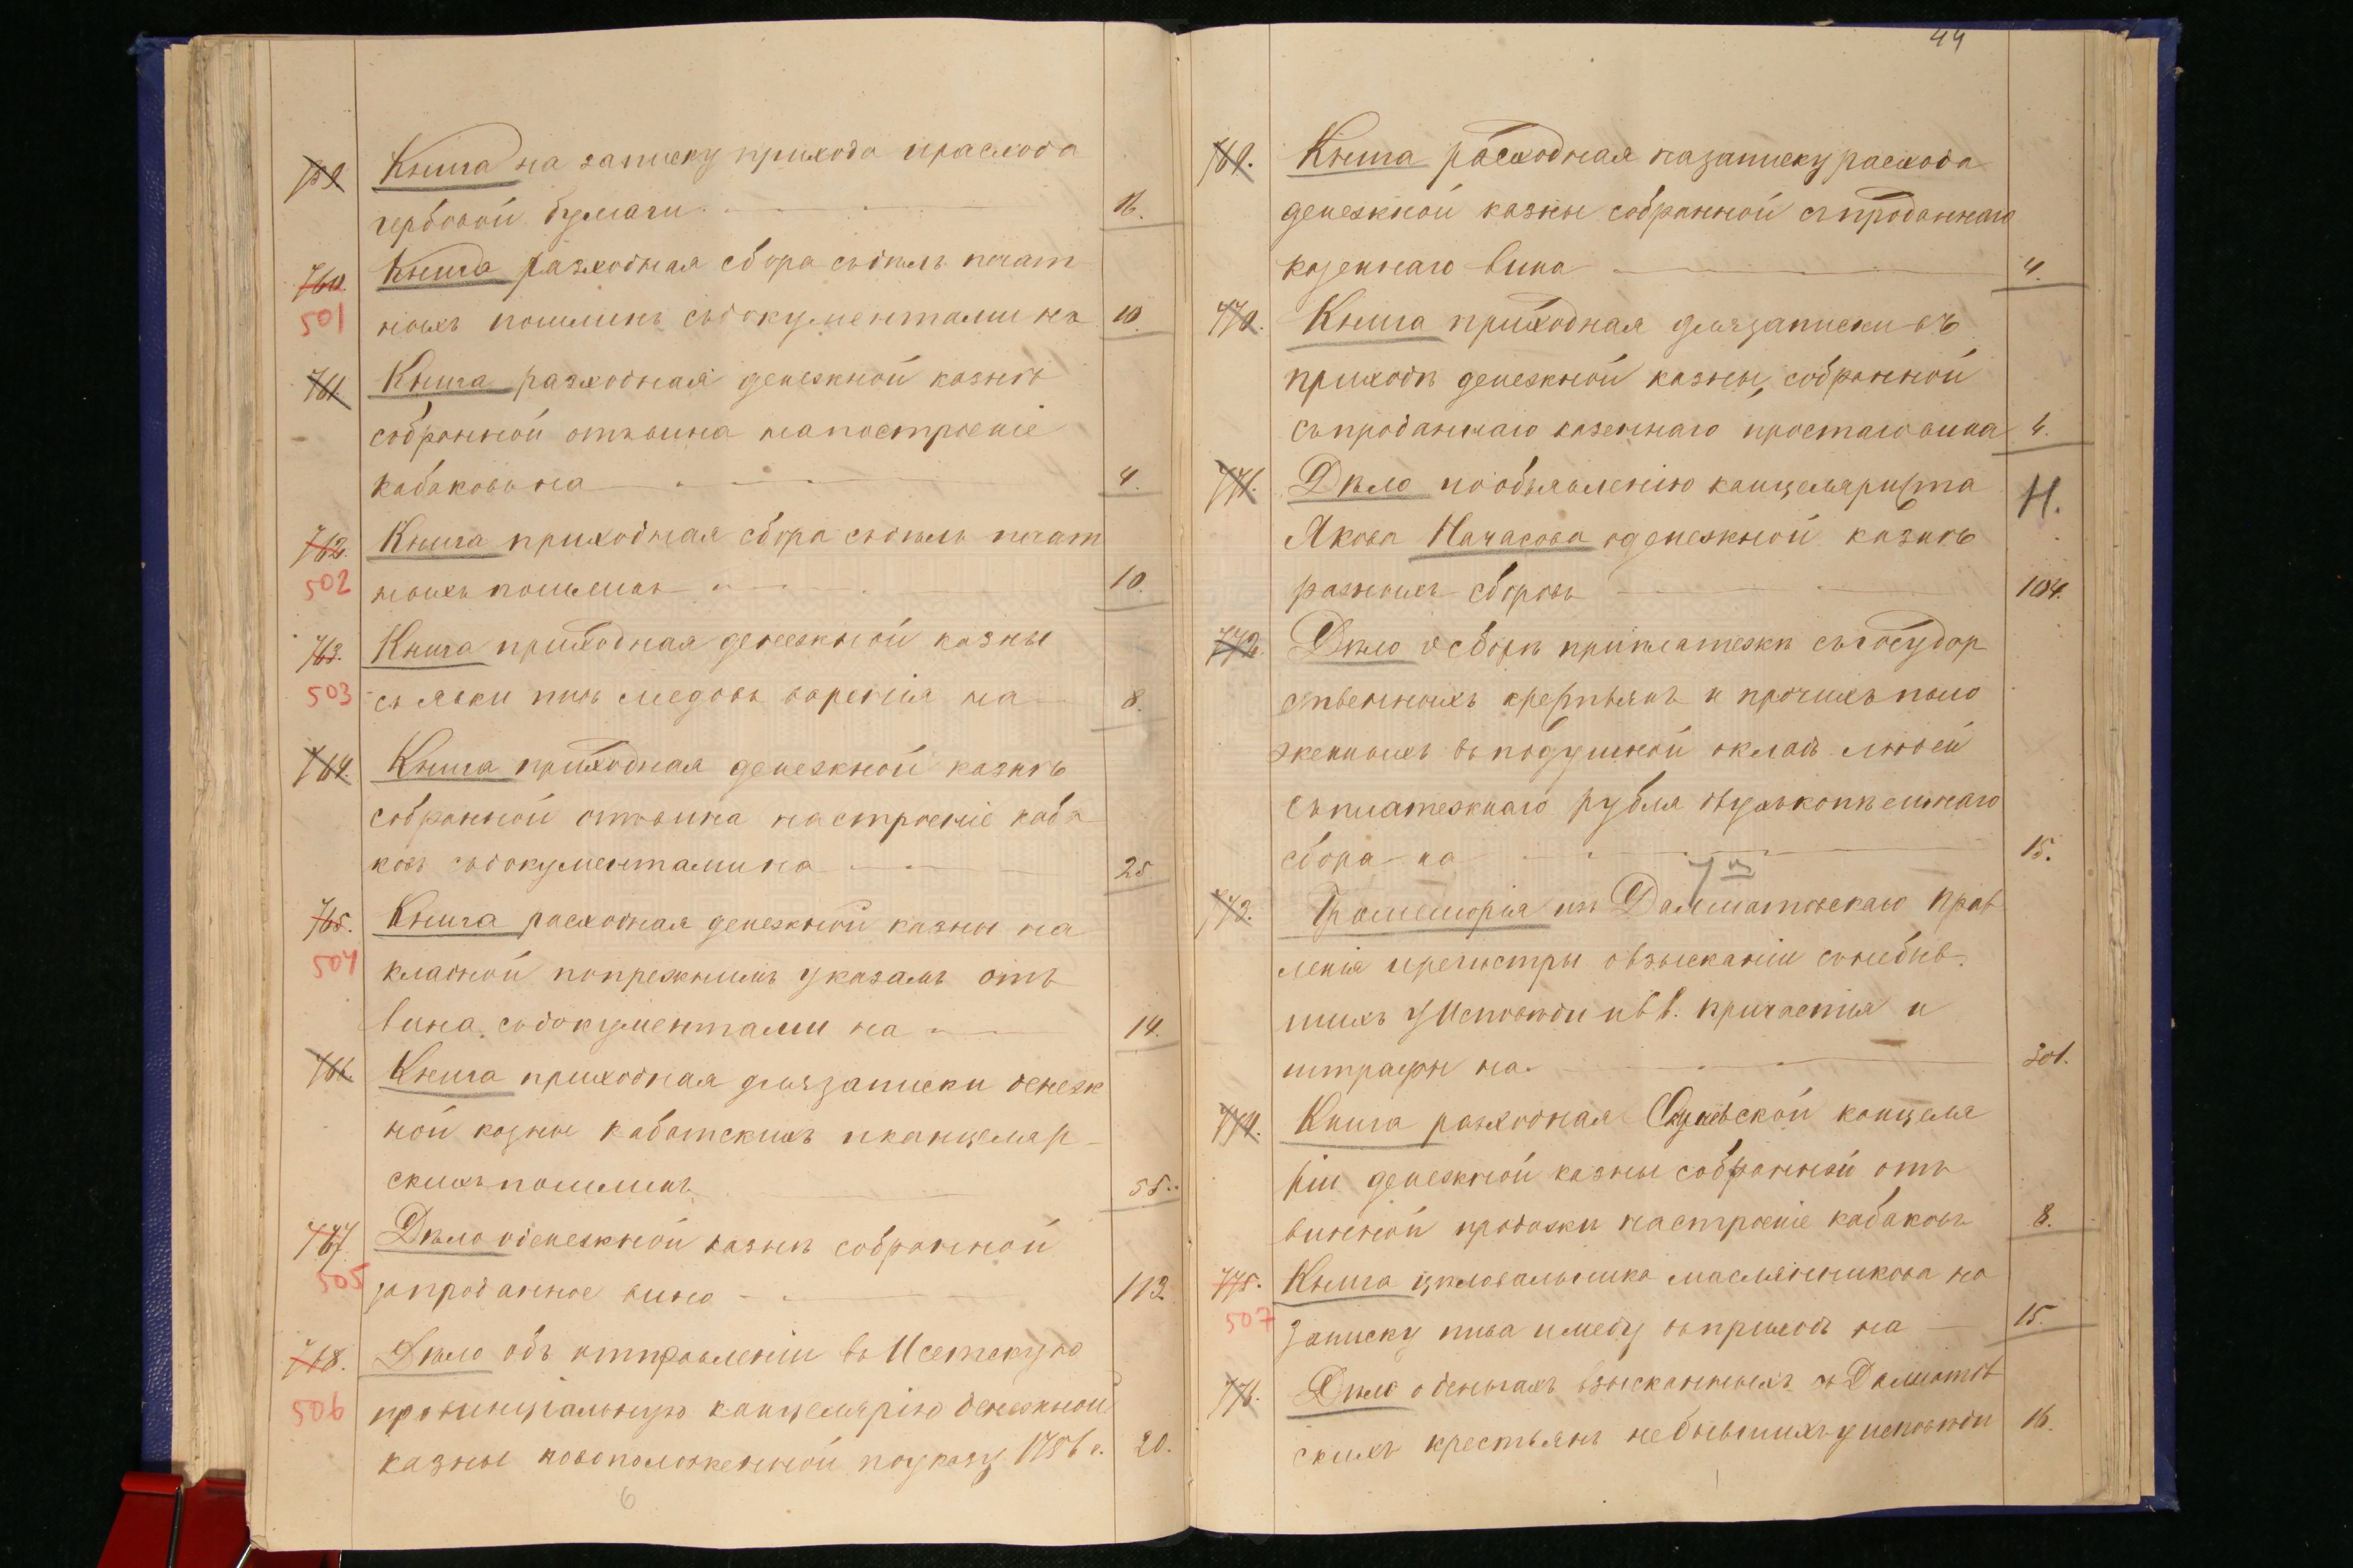 759 Книга на записку прихода и расхода
гербовой бумаги 16.
760. Книга разходная сбора съ дѣлъ печат
501 ныхъ пошлинъ съ документами на 10.
761. Книга разходная денежной казнѣ
собранной отъ вина на построение
кабаковъ на 4.
762. Книга приходная сбора съ дѣлъ печат
502 ныхъ пошлинъ 10.
763. Книга приходная денежной казны
503 съ явки пивъ медовъ варенія на 8.
764. Книга приходная денежной казнѣ
собранной отъ вина на строеніе каба
ковъ съ документами на 25
765. Книга расходная денежной казны на
504 кладной по прежнимъ указамъ отъ
вина съ документами на 14.
766. Книга приходная для записки денеж
ной казны кабатскихъ и канцеляр-
скихъ пошлинъ 55.
767. Дѣло о денежной казнѣ собранной
505 за проданное вино 113.
768. Дѣло объ отправленіи въ Исетскую
506 провинціальную канцелярію денежной
казны новоположенной по указу 1756 г. 20.
6
44
769. Книга расходная на записку расхода
денежной казны собранной съ проданнаго
казеннаго вина 4.
770. Книга приходная для записки въ
приходъ денежной казны, собранной
съ проданнаго казеннаго простаго вина 4.
771. Дѣло по объявленію канцеляриста Н.
Якова Начасова о денежной казнѣ
разныхъ сборовъ 104.
772. Дѣло о сборѣ при платежѣ съ государ
ственныхъ крестьянъ и прочихъ поло
женныхъ въ подушной окладъ людей
съ платежнаго рубля двухъ копѣечнаго
сбора на 15.
773. Промеморія изъ Далматовскаго прав
ленія и регистры о взысканіи съ небыв-
шихъ у Исповѣди и св. причастія и
штрафы на 301.
774. Книга разходная Окуневской канцеля
ріи денежной казны собранной отъ
винной продажи на строеніе кабаковъ 8.
775. Книга цѣловальника Маслянникова на
507 записку пива и меду въ приходъ на 15.
776. Дѣло о деньгахъ взысканныхъ съ Далматов
скихъ крестьянъ не бывшихъ у исповѣди 16.